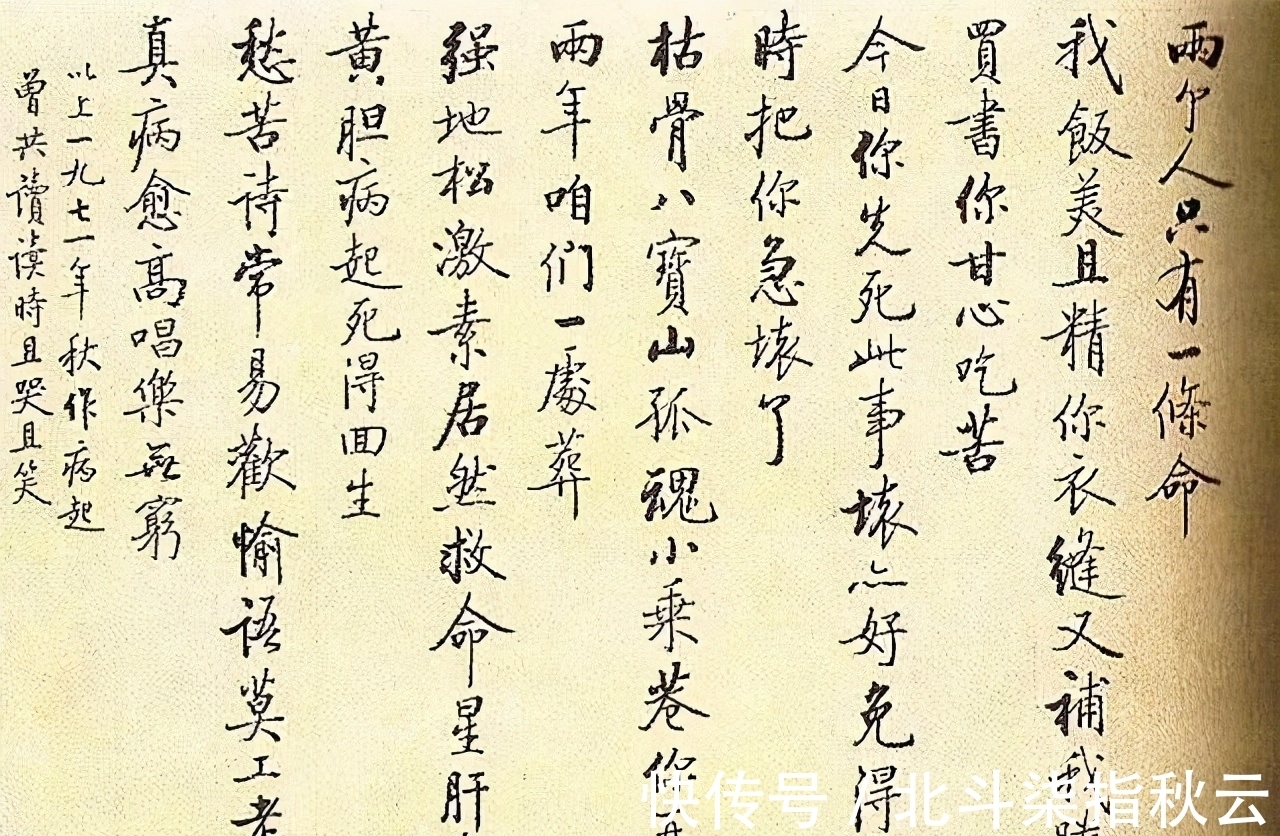 兩个人只有一條命
我飯美且精你衣縫又補我
買書你甘心吃苦
今日你先死此事壞亦好免得
時把你急壞了
枯骨八寶山孤魂小乘巷你
兩年咱们一處葬
强地松激素居然救命星肝
黄胆病起死得回生
愁苦诗常易歡愉语莫工老
真病愈高唱樂無窮
以上一九七一年秋作病起
曾共讀讀時且哭且笑
快传号 / 北斗柒指秋云